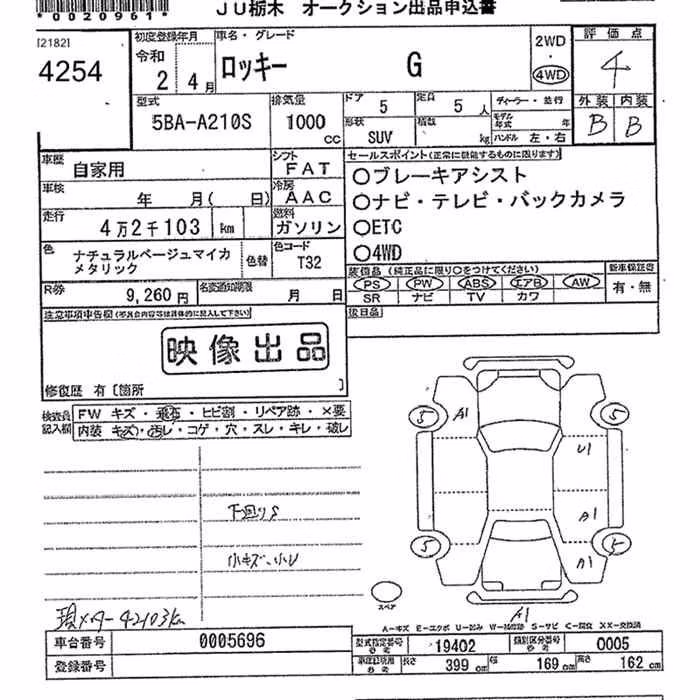 *0020961*
JU栃木 オークション出品申込書
[2182]
4254
初度登録年月
令和
2 4月
車名・グレード
ロッキー G
2WD
・
4WD
評価点
4
外装 内装
B B
型式
5BA-A210S
排気量
1000
cc
ドア
5
定員
5人
形状
SUV
積数
kg
ディーラー・並行
モデル年式 年
ハンドル 左・右
車歴
自家用
シフト
FAT
車検
年 月( 日)
冷房
AAC
走行
4万2千103 km
燃料
ガソリン
色
ナチュラルベージュマイカ
メタリック
色替
色コード
T32
R券
9,260円
名変通知期限
月 日
セールスポイント(正常に機能するものに限ります)
○ブレーキアシスト
○ナビ・テレビ・バックカメラ
○ETC
○4WD
装備品 (純正品に限り○をつけてください)
PS PW ABS エアB AW
SR ナビ TV カワ
新車保証書
有・無
後日品
注意事項申告欄
映像出品
修復歴 有 [箇所 ]
検査員
記入欄
FW キズ・飛石・ヒビ割・リペア跡・×要
内装 キズ・汚レ・コゲ・穴・スレ・キレ・破レ
下廻りS
小キズ、小
現メーター42103km
5 A1 5
U1
A1
5 A1 5
スペア
A1
A-キズ E-エクボ U-凹み W-補修跡 S-サビ C-腐食 XX-交換済
車台番号
0005696
登録番号
型式指定番号
参考
19402
類別区分番号
参考
0005
参考
長さ 399 cm
幅 169 cm
高さ 162 cm